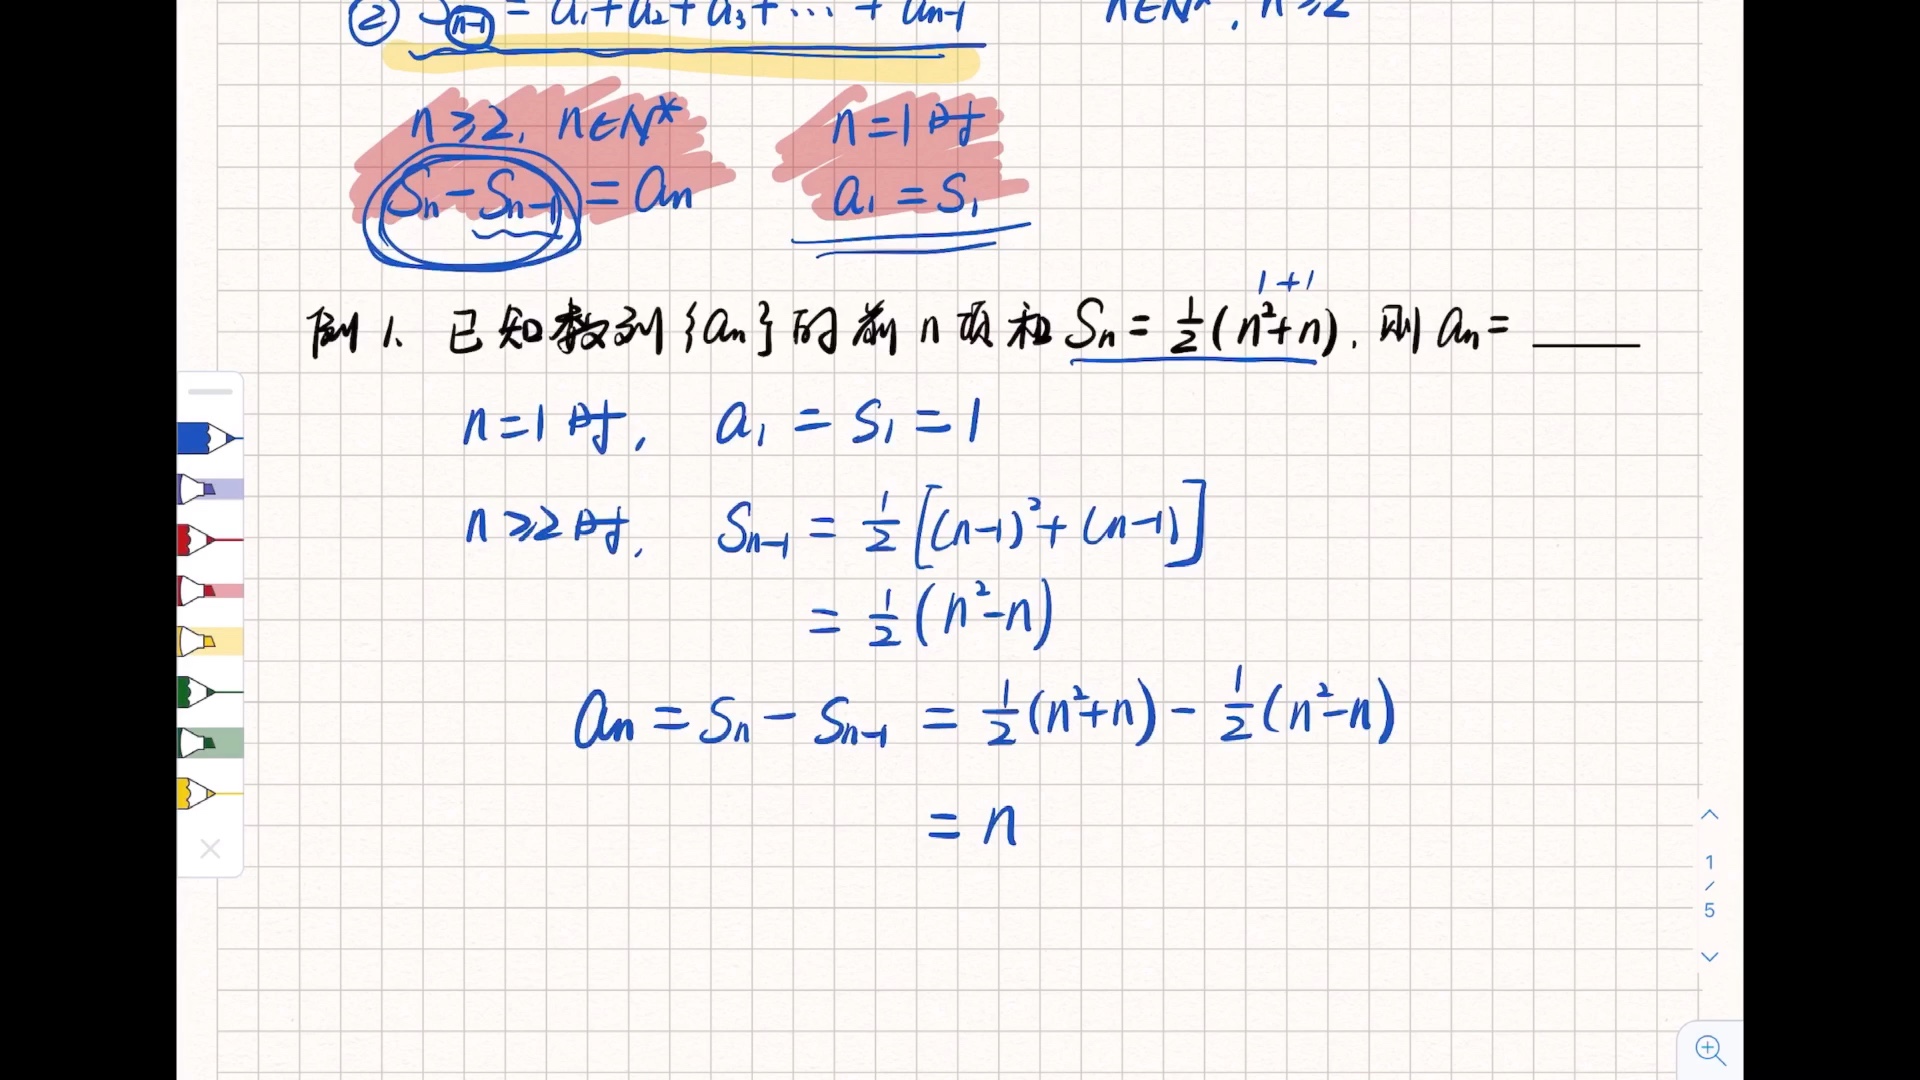 ② Sn-1 = a₁+a₂+a₃+⋯+an-1 n∈N*, n≥2
n≥2, n∈N* n=1时
Sn-Sn-1=an a₁=S₁
1+1
例1. 已知数列{an}的前n项和Sn=½(n²+n). 则an=____
n=1时, a₁=S₁=1
n≥2时, Sn-1=½[(n-1)²+(n-1)]
=½(n²-n)
an=Sn-Sn-1=½(n²+n)-½(n²-n)
=n
1
/
5